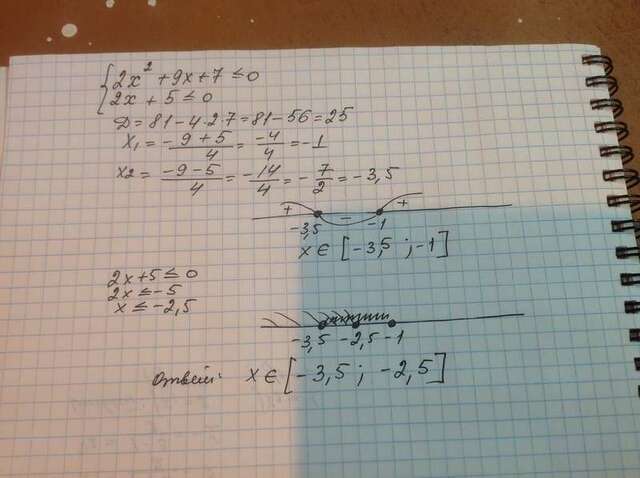 {2x² + 9x + 7 ≤ 0
2x + 5 ≤ 0
D = 81 - 4·2·7 = 81 - 56 = 25
x₁ = (-9 + 5)/4 = -4/4 = -1
x₂ = (-9 - 5)/4 = -14/4 = -7/2 = -3,5
+ - +
-3,5 -1
x ∈ [-3,5 ; -1]
2x + 5 ≤ 0
2x ≤ -5
x ≤ -2,5
-3,5 -2,5 -1
Ответ: x ∈ [-3,5 ; -2,5]